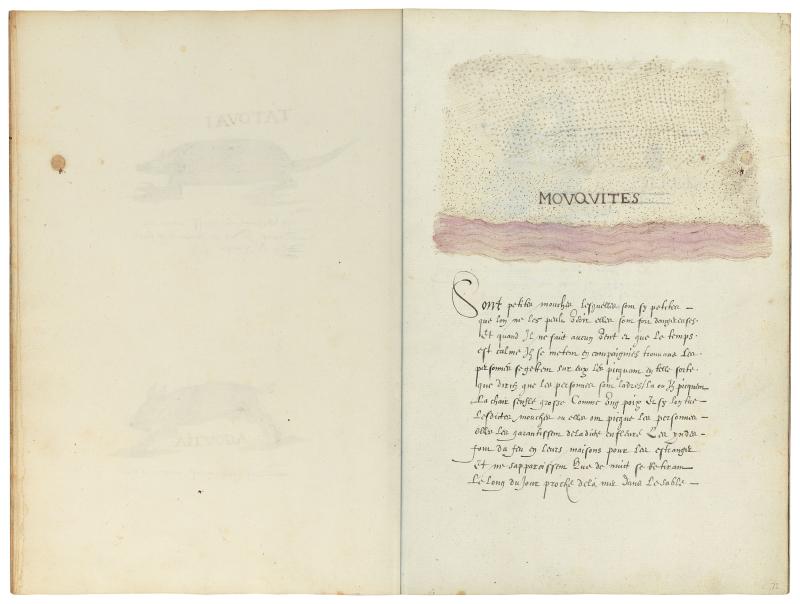 TATOVAI
MOVQVITES
Sont petites mouches lesquelles sont sy petites
que lon ne les peult veoir elles sont fort dangereuses.
Et quand Il ne fait aucun vent et que le temps
est calme Ilz se metent en compaignies trouvans les
personnes se getent sur eux les picquant en telle sorte
que diriez que les personnes sont ladres, la ou Ilz picquent
La chair senfle grosse Comme ung poix Et sy lon tue
Lesdites mouches ou elles ont picque les personnes
elles les garantissent de la dite enfleure Les yndes
font du feu en leurs maisons pour les estranger
Et ne sapparoissent que de nuit se retirant
Le long du Jour proche de la mer dans Le sable